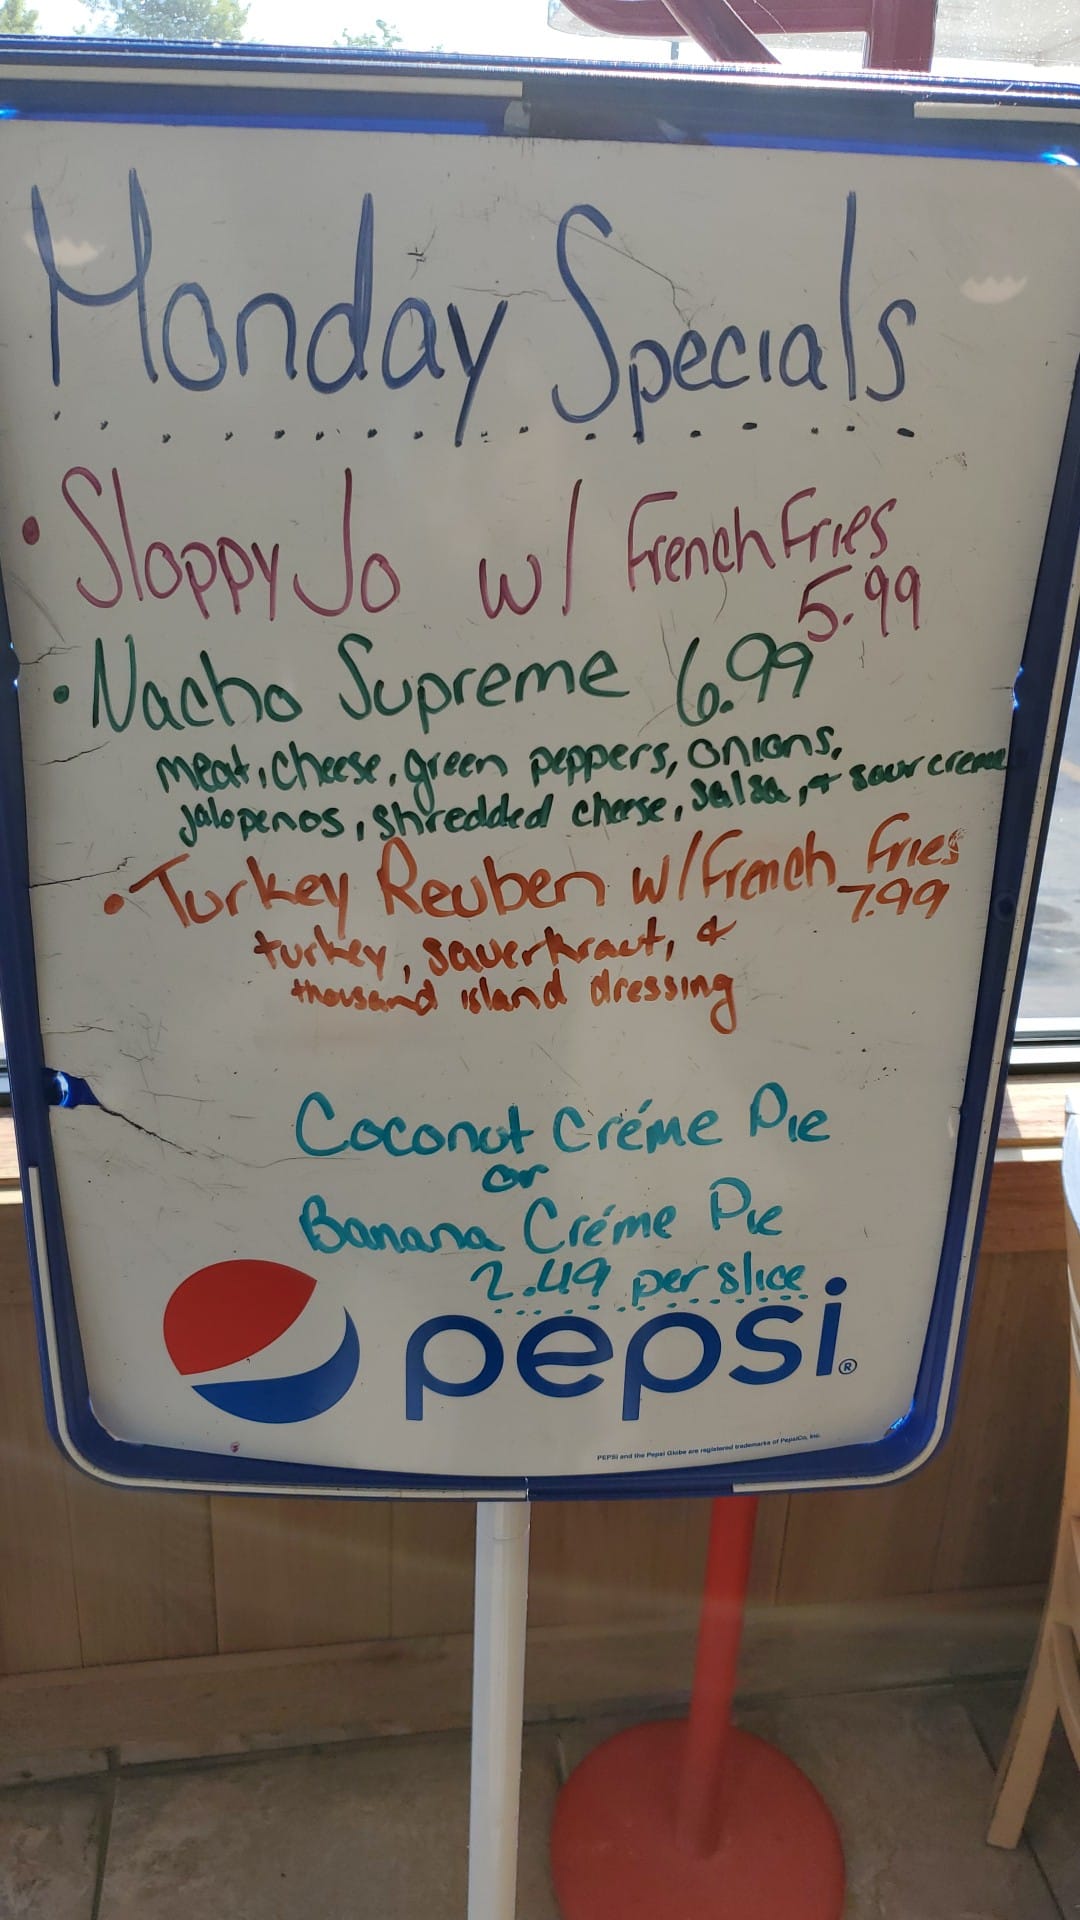 Monday Specials
• Sloppy Jo w/ French Fries
5.99
• Nacho Supreme 6.99
meat, cheese, green peppers, onions,
jalopenos, shredded cheese, salsa, + sour creme
• Turkey Reuben w/ French Fries
7.99
turkey, sauerkraut, &
thousand island dressing
Coconut Créme Pie
or
Banana Créme Pie
2.49 per slice
pepsi®
PEPSI and the Pepsi Globe are registered trademarks of PepsiCo, Inc.